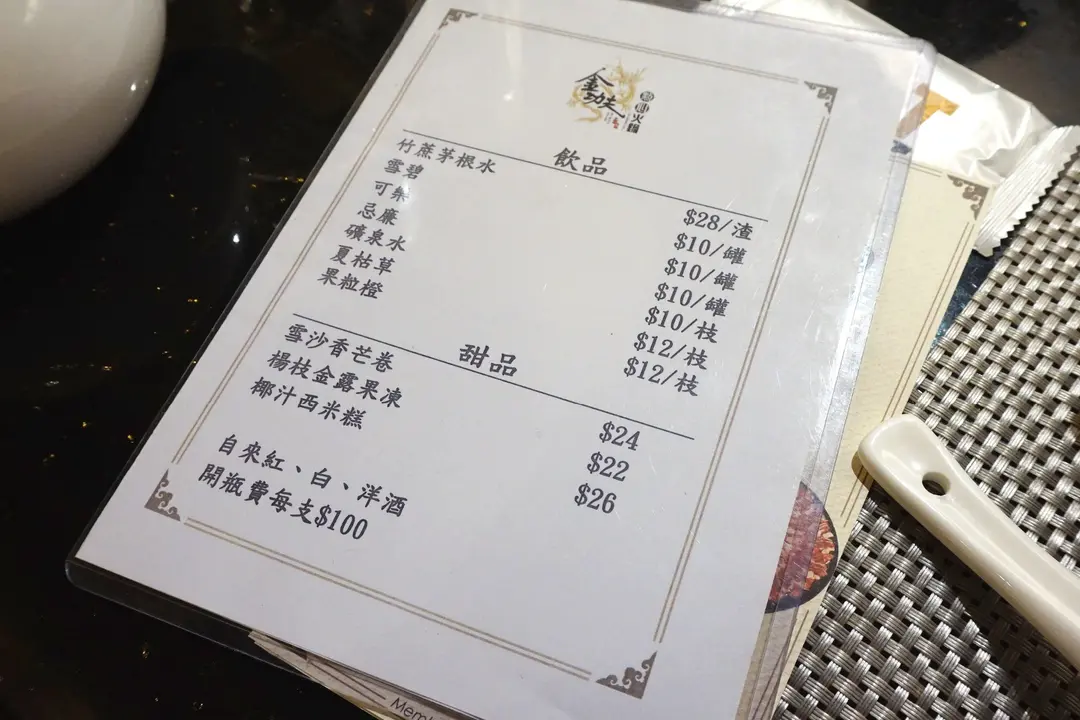 金功夫
火鍋
飲品
竹蔗茅根水 $28/渣
雪碧 $10/罐
可樂 $10/罐
忌廉 $10/罐
礦泉水 $10/枝
夏枯草 $12/枝
果粒橙 $12/枝
甜品
雪沙香芒卷 $24
楊枝金露果凍 $22
椰汁西米糕 $26
自來紅、白、洋酒
開瓶費每支$100